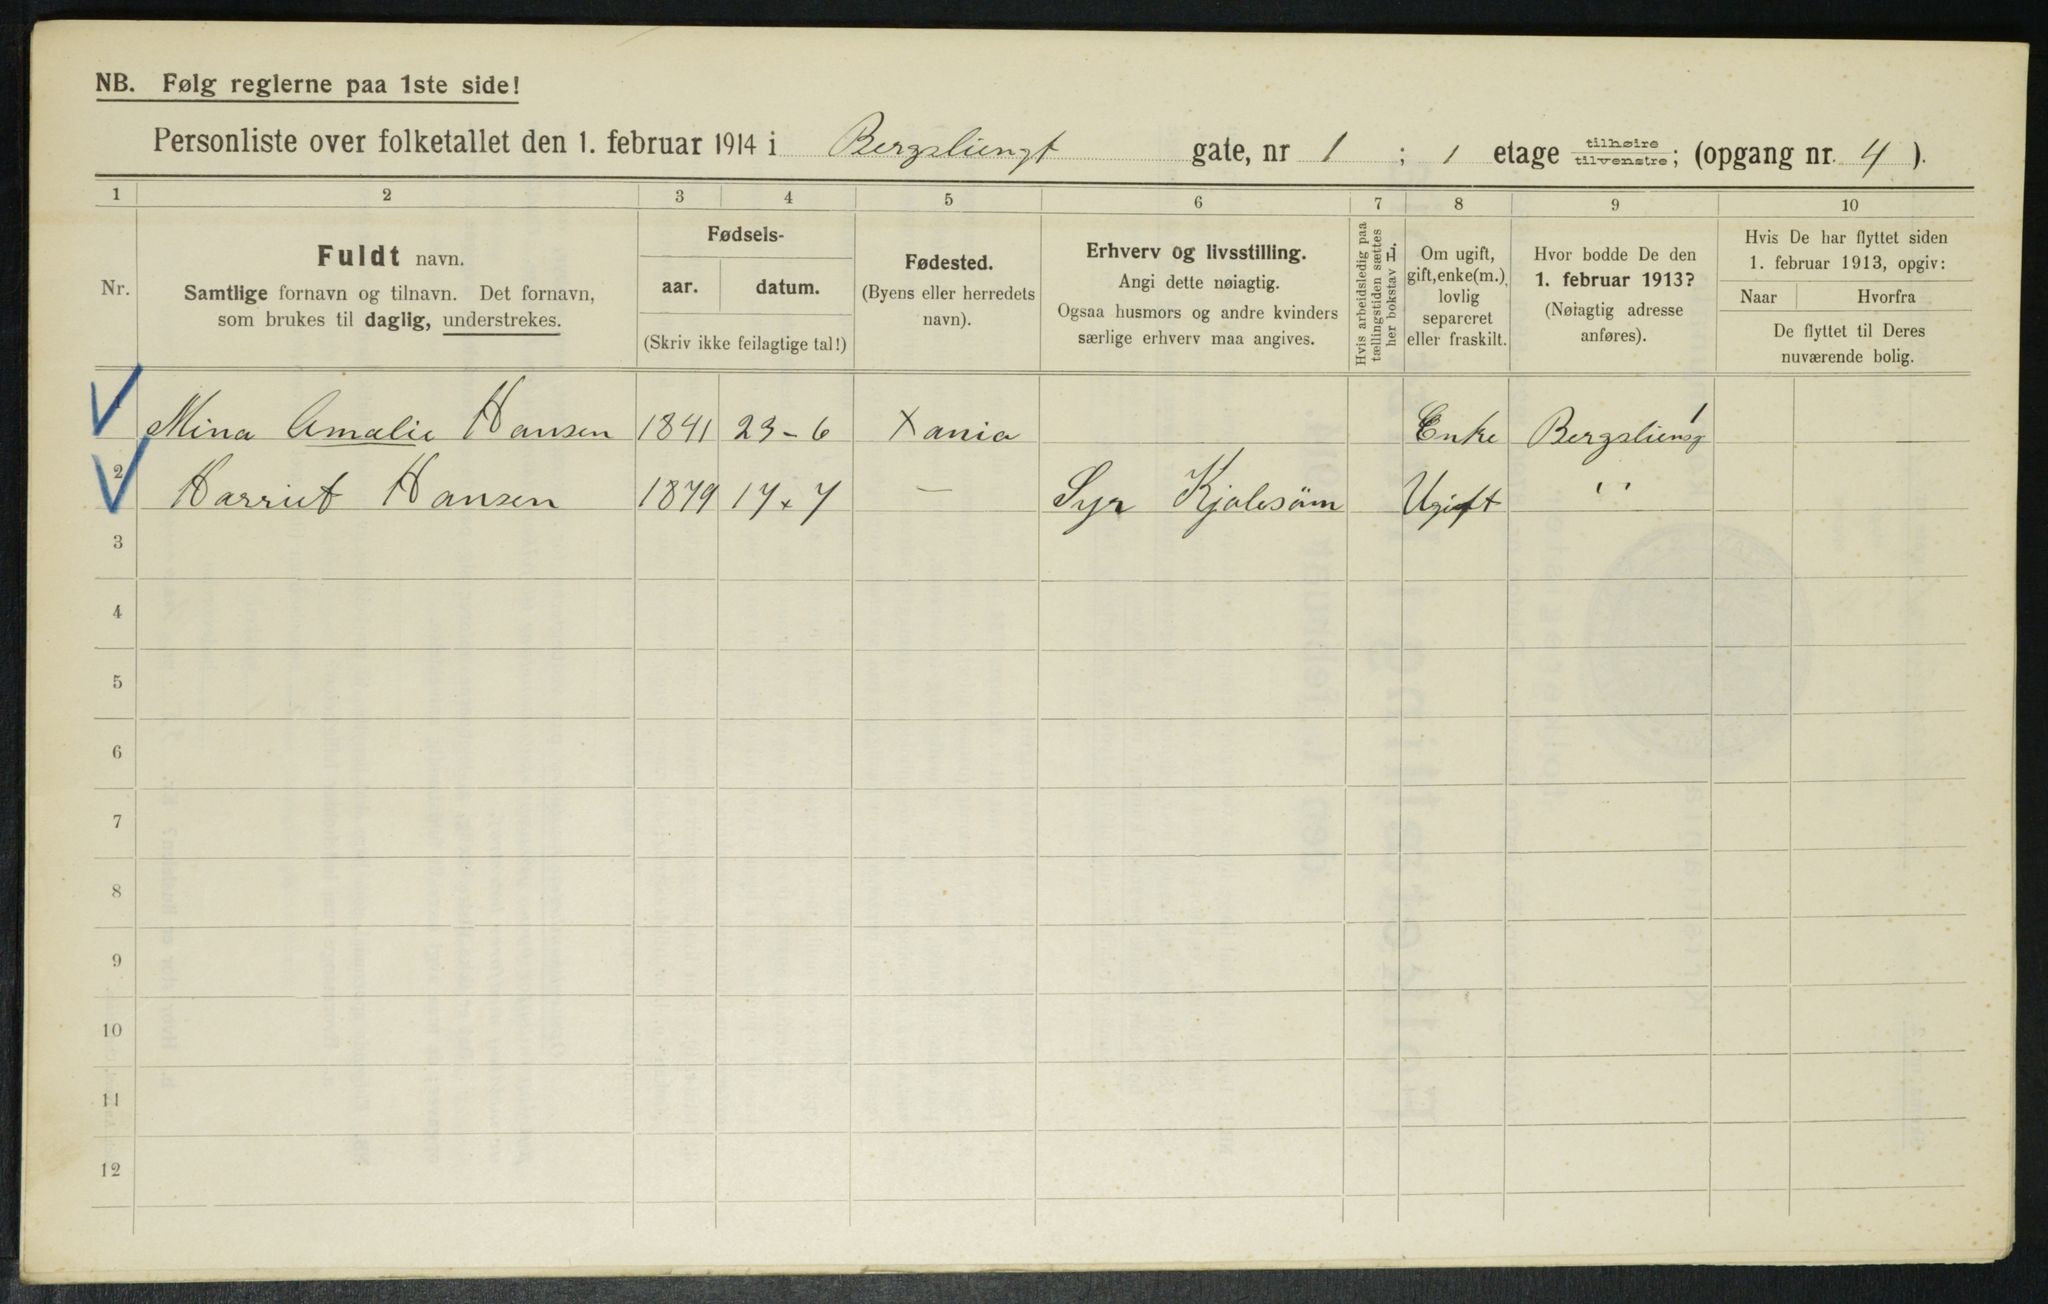 NB. Følg reglerne paa 1ste side!
Personliste over folketallet den 1. februar 1914 i Bergsliengt gate, nr 1 ; 1 etage tilhøire tilvenstre; (opgang nr. 4 ).
1 2 3 4 5 6 7 8 9 10
Nr.
Fuldt navn.
Samtlige fornavn og tilnavn. Det fornavn,
som brukes til daglig, understrekes.
Fødsels-
aar. datum.
(Skriv ikke feilagtige tal!)
Fødested.
(Byens eller herredets
navn).
Erhverv og livsstilling.
Angi dette nøiagtig.
Ogsaa husmors og andre kvinders
særlige erhverv maa angives.
Hvis arbeidsledig paa
tællingstiden sættes
her bokstav L.
Om ugift,
gift, enke(m.),
lovlig
separeret
eller fraskilt.
Hvor bodde De den
1. februar 1913?
(Nøiagtig adresse
anføres).
Hvis De har flyttet siden
1. februar 1913, opgiv:
Naar Hvorfra
De flyttet til Deres
nuværende bolig.
1 Mina Amalie Hansen 1841 23-6 Xania Enke Bergslieng 1
2 Harriet Hansen 1879 17 x 7 — Syr Kjolesöm Ugift " "
3
4
5
6
7
8
9
10
11
12